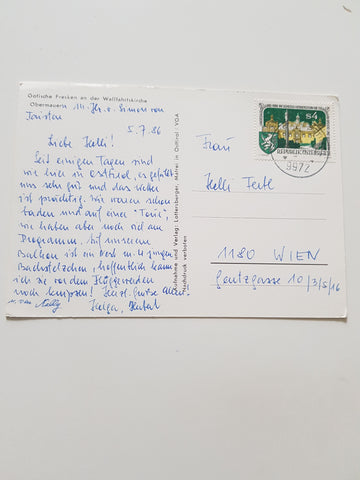 Gotische Fresken an der Wallfahrtskirche
Obermauern
5.7.86
Liebe Helli!
Seit einigen Tagen sind
wir hier in Osttirol, es gefällt
uns sehr gut und das Wetter
ist prächtig. Wir waren schon
baden und auf einer "Tour",
wir haben aber noch viel am
Programm. Auf unserem
Balkon ist ein Nest mit jungen
Bachstelzchen, hoffentlich kann
ich sie vor dem Flüggewerden
noch knipsen! Herzl. Grüße
Helga,
u. von
Aufnahme und Verlag: Lottersberger, Matrei in Osttirol · VGA
Nachdruck verboten
S4
REPUBLIK ÖSTERREICH
9972
Frau
Helli
1180 WIEN
Gentzgasse 10/3/5/16